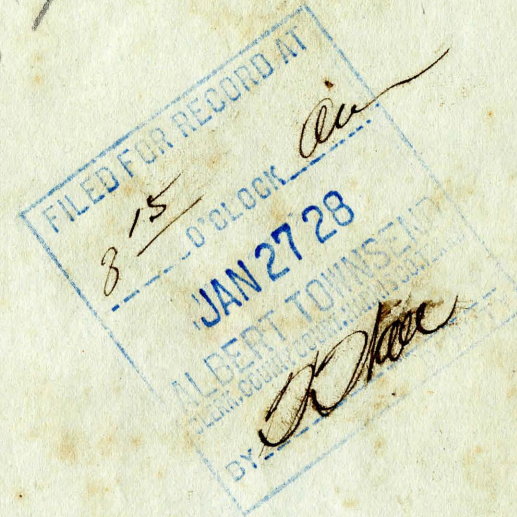 FILED FOR RECORD AT
8 15 O'CLOCK am
JAN 27 28
ALBERT TOWNSEND
CLERK, COUNTY COURT,
BY